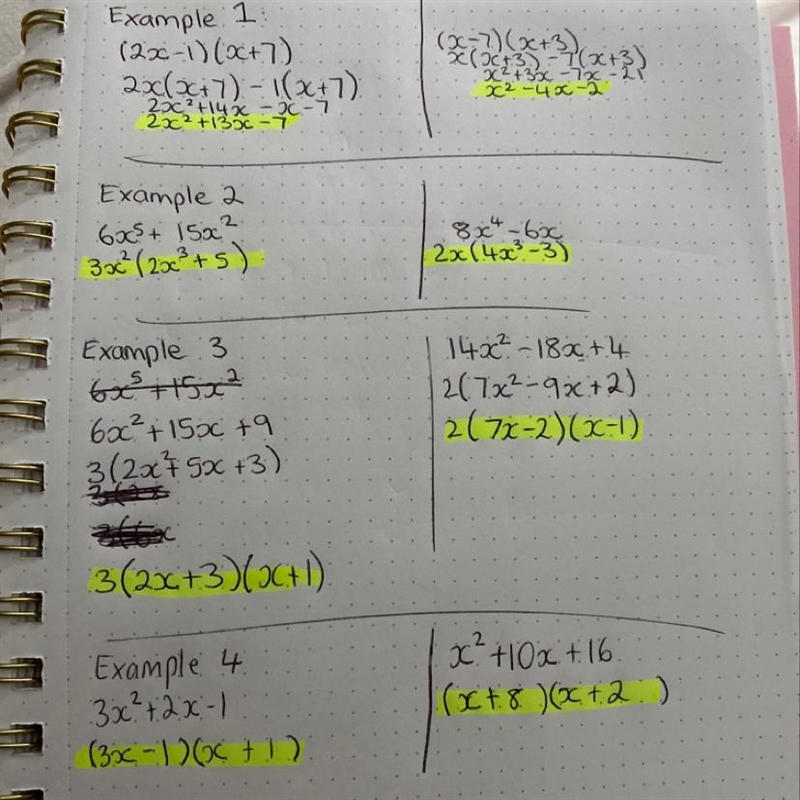 Example 1:
(2x-1)(x+7)
2x(x+7) - 1(x+7)
2x²+14x - x - 7
2x²+13x-7
(x-7)(x+3)
x(x+3) -7(x+3)
x²+3x -7x -21
x² -4x -2
Example 2
6x⁵ + 15x²
3x²(2x³ + 5)
8x⁴ - 6x
2x(4x³ - 3)
Example 3
6x⁵ + 15x²
6x² + 15x + 9
3(2x² + 5x + 3)
3(2x+3)(x+1)
14x² - 18x + 4
2(7x² - 9x + 2)
2(7x-2)(x-1)
Example 4
3x² + 2x - 1
(3x - 1)(x + 1)
x² + 10x + 16
(x + 8)(x + 2)